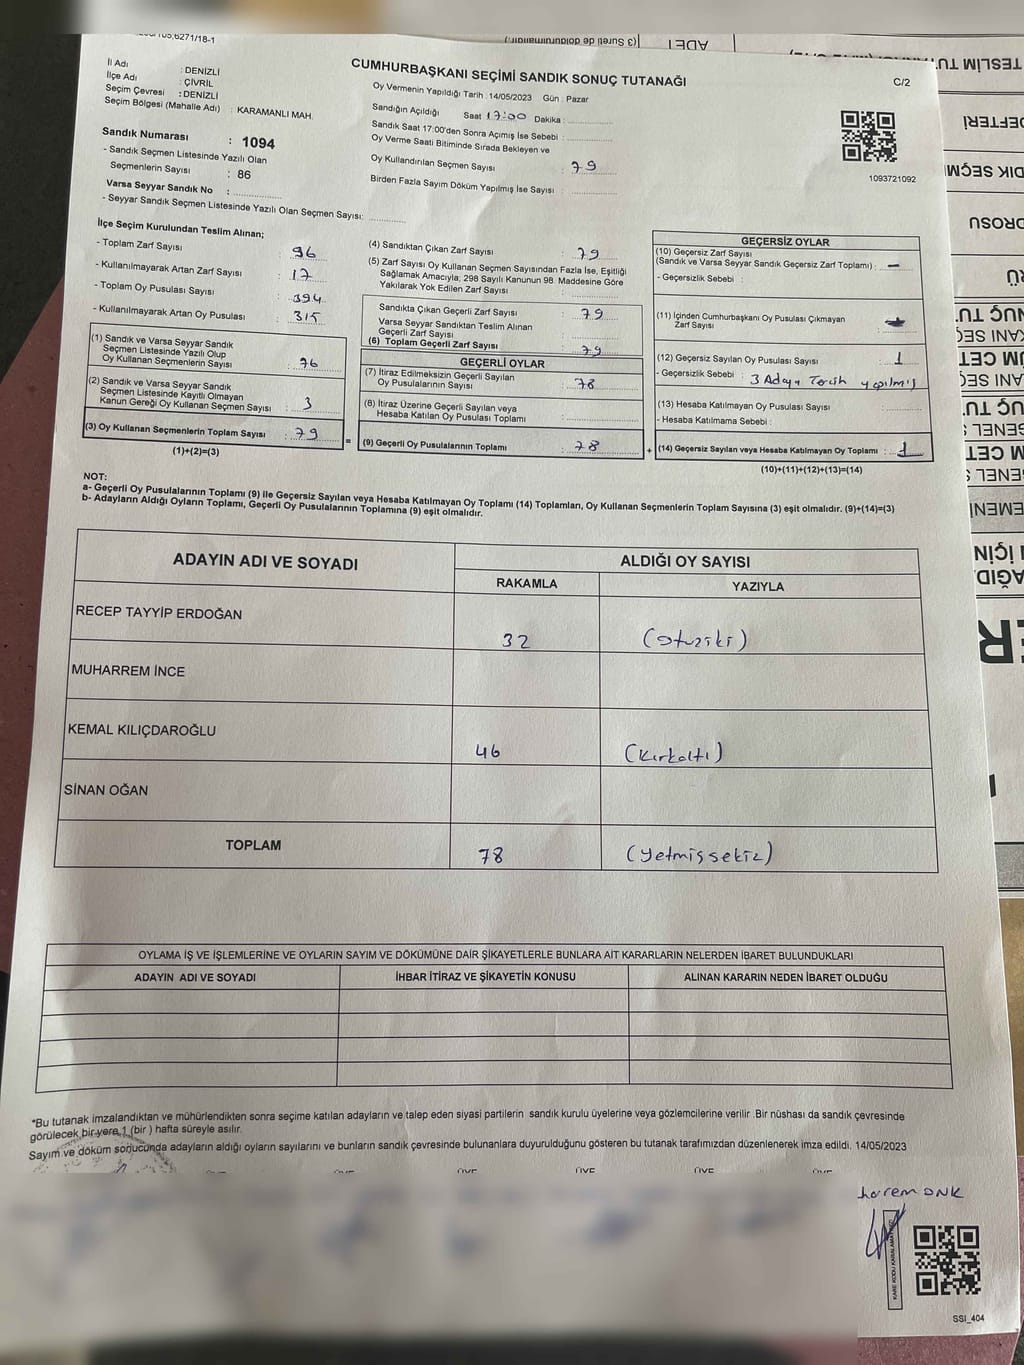 6271/18-1
CUMHURBAŞKANI SEÇİMİ SANDIK SONUÇ TUTANAĞI
C/2
İl Adı : DENİZLİ
İlçe Adı : ÇİVRİL
Seçim Çevresi : DENİZLİ
Seçim Bölgesi (Mahalle Adı) : KARAMANLI MAH.
Sandık Numarası : 1094
- Sandık Seçmen Listesinde Yazılı Olan
Seçmenlerin Sayısı : 86
Varsa Seyyar Sandık No :
- Seyyar Sandık Seçmen Listesinde Yazılı Olan Seçmen Sayısı:
Oy Vermenin Yapıldığı Tarih :14/05/2023 Gün : Pazar
Sandığın Açıldığı Saat 17:00 Dakika :
Sandık Saat 17:00'den Sonra Açımış İse Sebebi :
Oy Verme Saati Bitiminde Sırada Bekleyen ve
Oy Kullandırılan Seçmen Sayısı : 79
Birden Fazla Sayım Döküm Yapılmış İse Sayısı :
1093721092
İlçe Seçim Kurulundan Teslim Alınan;
- Toplam Zarf Sayısı : 96
- Kullanılmayarak Artan Zarf Sayısı : 17
- Toplam Oy Pusulası Sayısı : 394
- Kullanılmayarak Artan Oy Pusulası : 315
(1) Sandık ve Varsa Seyyar Sandık
Seçmen Listesinde Yazılı Olup
Oy Kullanan Seçmenlerin Sayısı : 76
(2) Sandık ve Varsa Seyyar Sandık
Seçmen Listesinde Kayıtlı Olmayan
Kanun Gereği Oy Kullanan Seçmen Sayısı : 3
(3) Oy Kullanan Seçmenlerin Toplam Sayısı : 79
(1)+(2)=(3)
(4) Sandıktan Çıkan Zarf Sayısı : 79
(5) Zarf Sayısı Oy Kullanan Seçmen Sayısından Fazla İse, Eşitliği
Sağlamak Amacıyla; 298 Sayılı Kanunun 98. Maddesine Göre
Yakılarak Yok Edilen Zarf Sayısı :
Sandıkta Çıkan Geçerli Zarf Sayısı : 79
Varsa Seyyar Sandıktan Teslim Alınan
Geçerli Zarf Sayısı :
(6) Toplam Geçerli Zarf Sayısı : 79
GEÇERLİ OYLAR
(7) İtiraz Edilmeksizin Geçerli Sayılan
Oy Pusulalarının Sayısı : 78
(8) İtiraz Üzerine Geçerli Sayılan veya
Hesaba Katılan Oy Pusulası Toplamı :
= (9) Geçerli Oy Pusulalarının Toplamı : 78
GEÇERSİZ OYLAR
(10) Geçersiz Zarf Sayısı
(Sandık ve Varsa Seyyar Sandık Geçersiz Zarf Toplamı) : —
- Geçersizlik Sebebi :
(11) İçinden Cumhurbaşkanı Oy Pusulası Çıkmayan
Zarf Sayısı :
(12) Geçersiz Sayılan Oy Pusulası Sayısı : 1
- Geçersizlik Sebebi : 3 Adaya Tercih yapılmış
(13) Hesaba Katılmayan Oy Pusulası Sayısı :
- Hesaba Katılmama Sebebi :
+ (14) Geçersiz Sayılan veya Hesaba Katılmayan Oy Toplamı : 1
(10)+(11)+(12)+(13)=(14)
NOT:
a- Geçerli Oy Pusulalarının Toplamı (9) ile Geçersiz Sayılan veya Hesaba Katılmayan Oy Toplamı (14) Toplamları, Oy Kullanan Seçmenlerin Toplam Sayısına (3) eşit olmalıdır. (9)+(14)=(3)
b- Adayların Aldığı Oyların Toplamı, Geçerli Oy Pusulalarının Toplamına (9) eşit olmalıdır.
ADAYIN ADI VE SOYADI ALDIĞI OY SAYISI
RAKAMLA YAZIYLA
RECEP TAYYİP ERDOĞAN 32 (otuziki)
MUHARREM İNCE
KEMAL KILIÇDAROĞLU 46 (kırkaltı)
SİNAN OĞAN
TOPLAM 78 (yetmişsekiz)
OYLAMA İŞ VE İŞLEMLERİNE VE OYLARIN SAYIM VE DÖKÜMÜNE DAİR ŞİKAYETLERLE BUNLARA AİT KARARLARIN NELERDEN İBARET BULUNDUKLARI
ADAYIN ADI VE SOYADI İHBAR İTİRAZ VE ŞİKAYETİN KONUSU ALINAN KARARIN NEDEN İBARET OLDUĞU
*Bu tutanak imzalandıktan ve mühürlendikten sonra seçime katılan adayların ve talep eden siyasi partilerin sandık kurulu üyelerine veya gözlemcilerine verilir .Bir nüshası da sandık çevresinde
görülecek bir yere 1 (bir ) hafta süreyle asılır.
Sayım ve döküm sonucunda adayların aldığı oyların sayılarını ve bunların sandık çevresinde bulunanlara duyurulduğunu gösteren bu tutanak tarafımızdan düzenlenerek imza edildi. 14/05/2023
ÜYE ÜYE ÜYE ÜYE ÜYE
KARE KODU KARALAMAYINIZ
SSI_404
(3 Suret de doldurulmalıdır.)
ADET